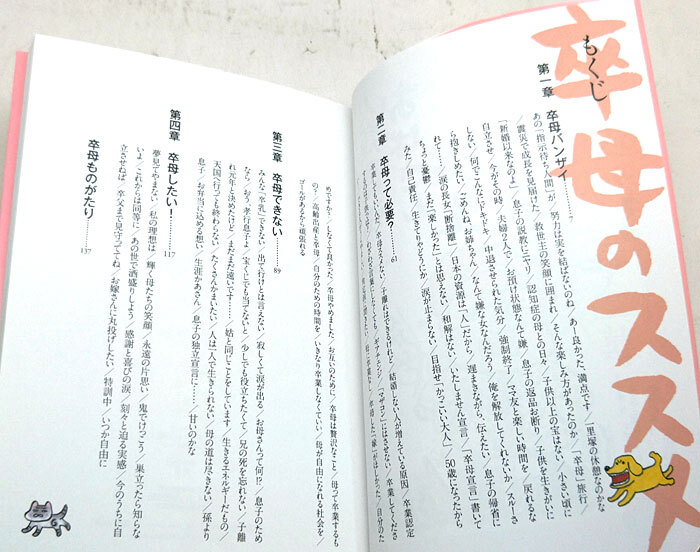 卒母のススメ
もくじ
第一章　卒母バンザイ……7
あの「指示待ち人間」が／努力は実を結ばないのね／あー良かった、満点です／一里塚の休憩なのかな
／震災で成長を見届けた／救世主の笑顔に囲まれ／そんな楽しみ方があったのか／「卒母」旅行
「新婚以来なのよ」／息子の説教にニヤリ／認知症の母との日々／子供以上の宝はない／小さい頃に
自立させ／今がその時／夫婦2人で／お預け状態なんて嫌／息子の返品お断り／子供を生きがいに
しない／何でこんなにドキドキ／中退させられた気分／強制終了／ママ友と楽しい時間を／戻れるな
ら抱きしめたい／ごめんね お姉ちゃん／なんて嫌な女なんだろう／俺を解放してくれないか／スルーさ
れて……／涙の長女「断捨離」／日本の資源は「人」だから／遅まきながら、伝えたい／息子の帰省に
ちょっと憂鬱／まだ「楽しかった」とは思えない／和解はない／いたしません宣言／「卒母宣言」書いて
みた／自己責任、生きてりゃどうにか／涙が止まらない／目指せ「かっこいい大人」／50歳になったから
第二章　卒母って必要？……61
めですか？／しなくて良かった／卒母やめました／お互いのために／卒母は贅沢なこと／母って卒業するも
の？／高齢出産と卒母／自分のための時間を／いきなり卒業しなくていい／母が自由になれる社会を／
ゴールがあるなら頑張れる
第三章　卒母できない……89
みんな「卒乳」できない／出て行けとは言えない／寂しくて涙が出る／お母さんって何!?／息子のため
なら／おう、孝行息子よ／宝くじにでも当てないと／少しでも役立ちたくて／兄の死を忘れない／子離
れ元年と決めたけど／まだまだ遠いです……／姑と同じことをしています／生きるエネルギーだもの／
天国へ行っても終わらない／たくさんかまいたい／人は一人で生きられない／母の道は尽きない／孫より
息子／お弁当に込める想い／生涯かあさん／息子の独立宣言に……／甘いのかな
第四章　卒母したい！……117
夢見てやまない／私の理想は／輝く母たちの笑顔／永遠の片思い／鬼でけっこう／巣立ったら知らな
いよ／これからは同等に／あの世で酒盛りしよう／感謝と喜びの涙／刻々と迫る実感／今のうちに自
立させねば／卒父まで見守っててね／お嫁さんに丸投げしたい／特訓中／いつか自由に
卒母ものがたり……137